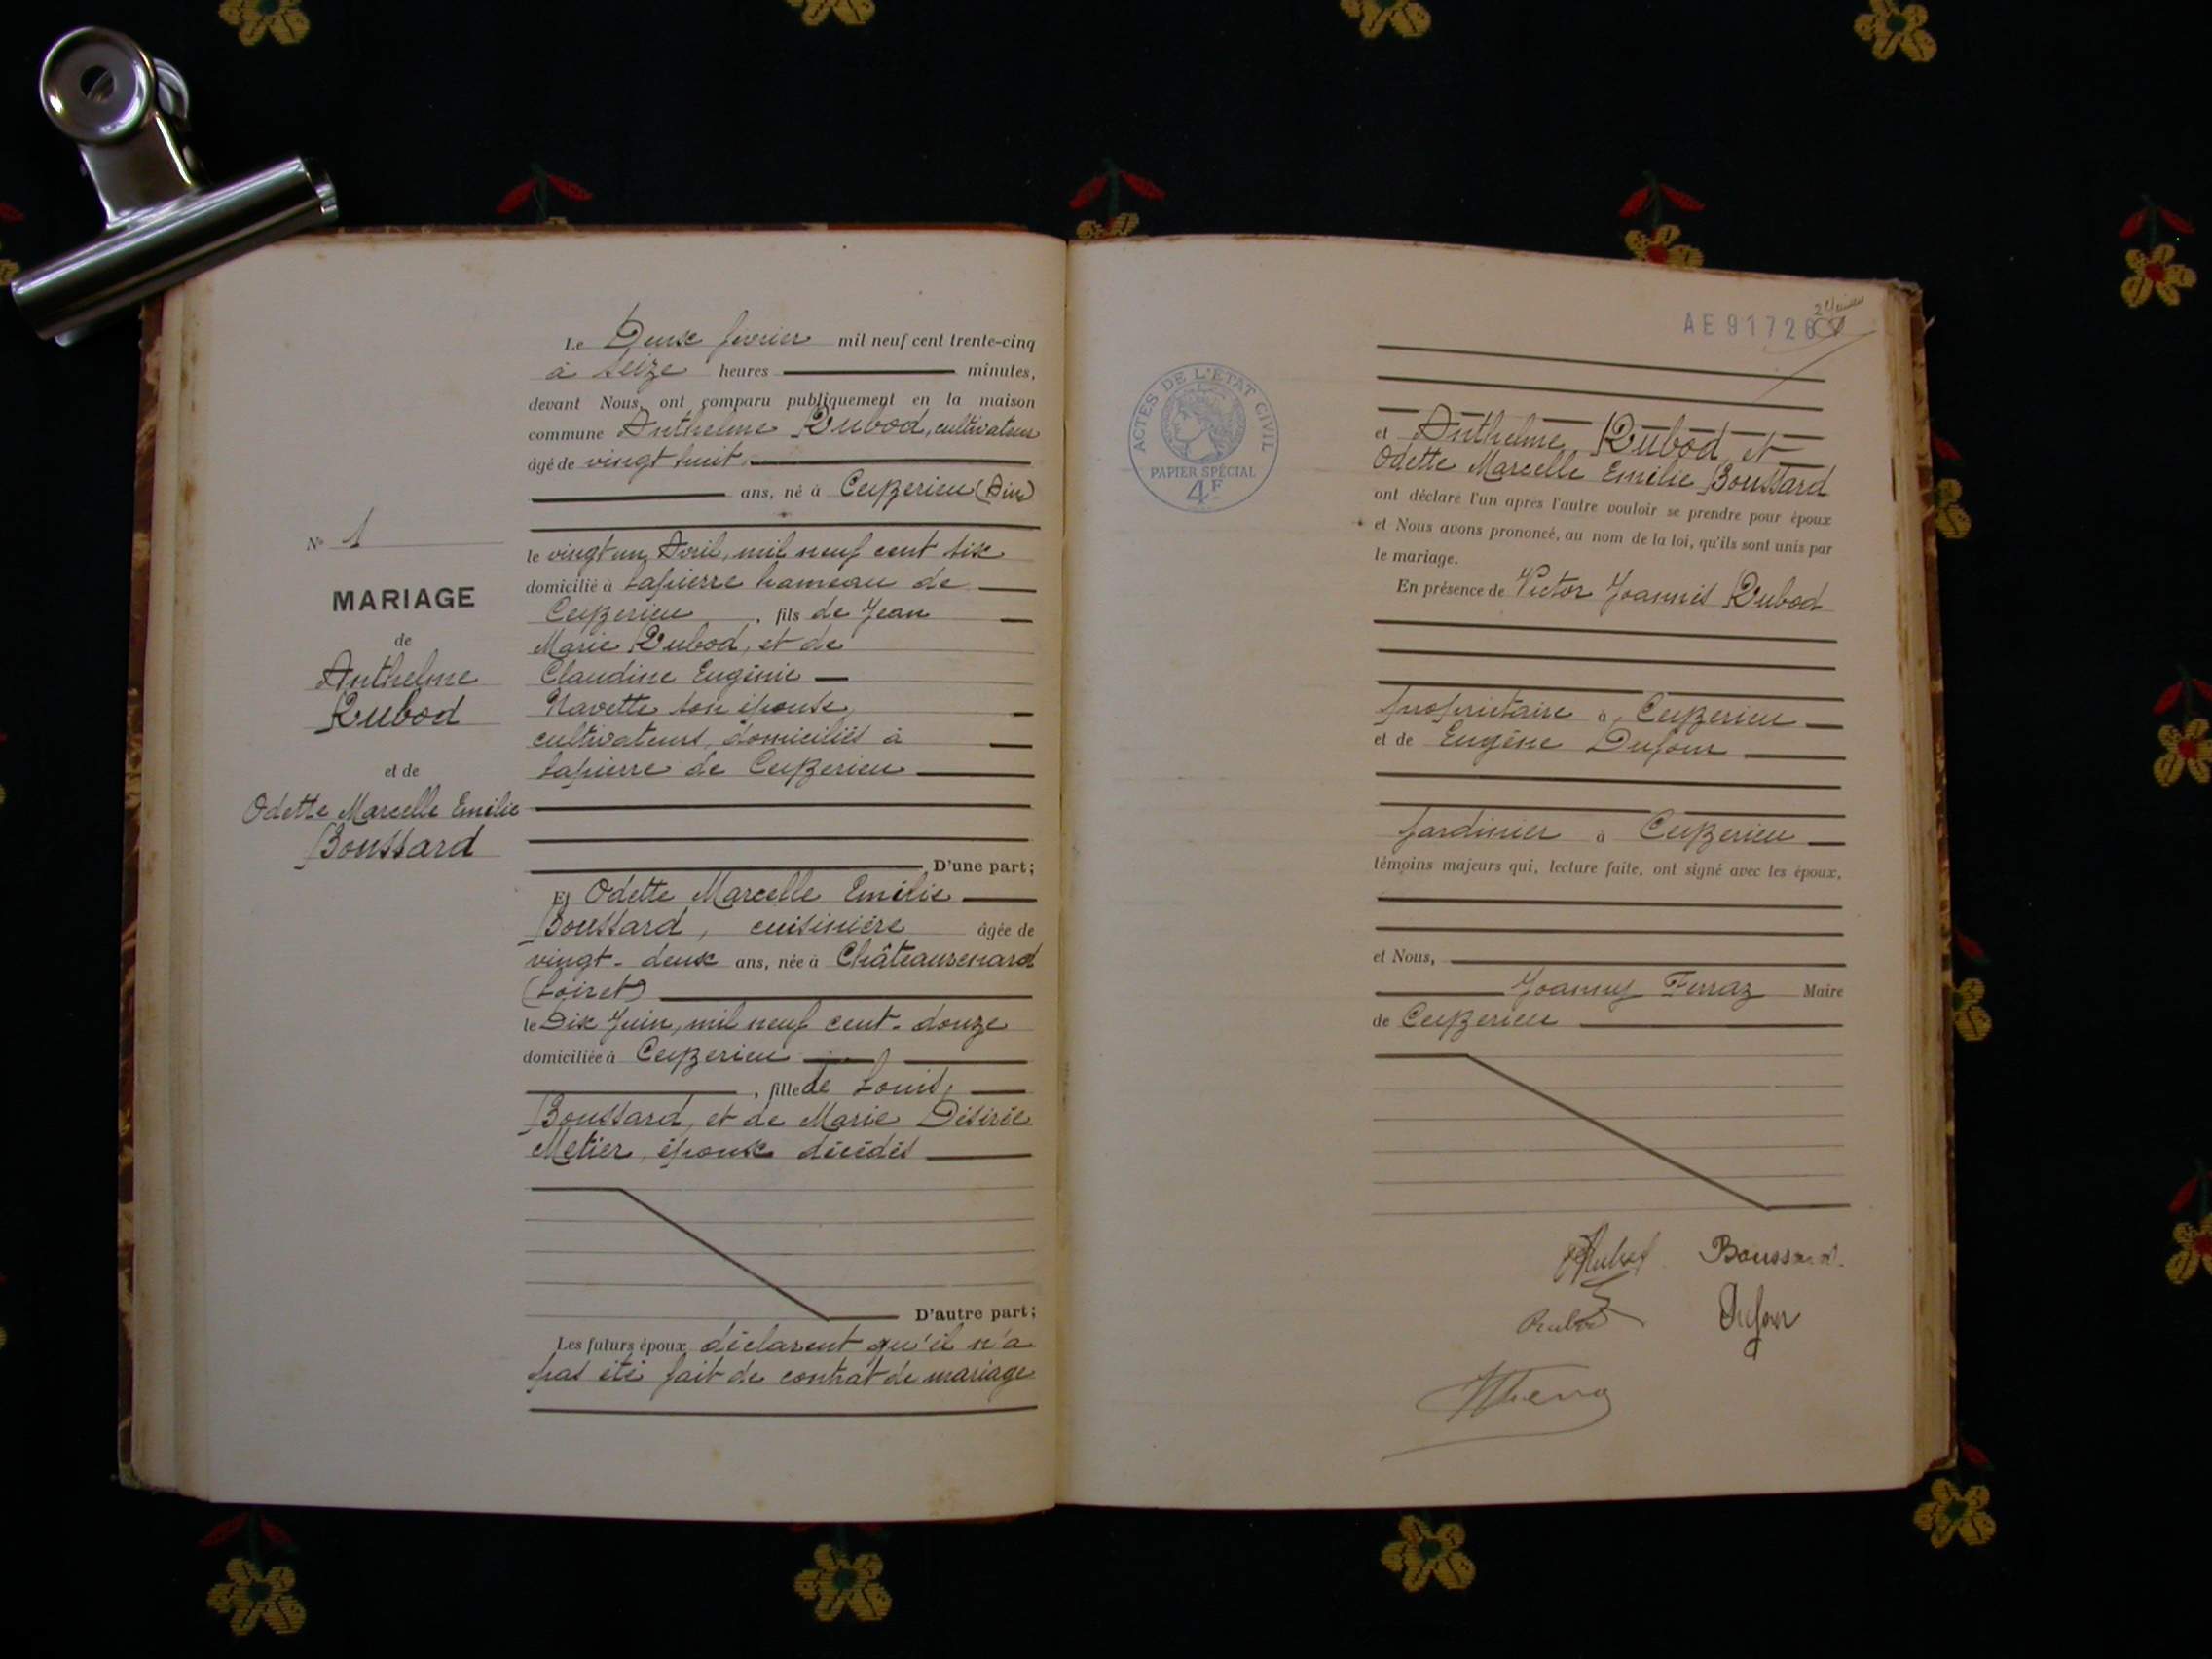 Le Deux février mil neuf cent trente-cinq
à seize heures minutes,
devant Nous, ont comparu publiquement en la maison
commune Anthelme Rubod, cultivateur
âgé de vingt huit
ans, né à Ceyzerieu (Ain)
le vingt un Avril, mil neuf cent six
domicilié à Lapierre hameau de
Ceyzerieu, fils de Jean
Marie Rubod, et de
Claudine Eugénie
Navette son épouse,
cultivateurs, domiciliés à
Lapierre de Ceyzerieu
D'une part;
Et Odette Marcelle Emilie
Boussard, cuisinière âgée de
vingt-deux ans, née à Châteaurenard
(Loiret)
le Dix Juin, mil neuf cent-douze
domiciliée à Ceyzerieu
, fille de Louis,
Boussard, et de Marie Désirée
Metier, époux décédés
D'autre part;
Les futurs époux déclarent qu'il n'a
pas été fait de contrat de mariage
N° 1
MARIAGE
de
Anthelme
Rubod
et de
Odette Marcelle Emilie
Boussard
AE91726
ACTES DE L'ÉTAT CIVIL
PAPIER SPÉCIAL
4F
et Anthelme Rubod, et
Odette Marcelle Emilie Boussard
ont déclaré l'un après l'autre vouloir se prendre pour époux
et Nous avons prononcé, au nom de la loi, qu'ils sont unis par
le mariage.
En présence de Victor Joannès Rubod
propriétaire à Ceyzerieu
et de Eugène Dufour
Jardinier à Ceyzerieu
témoins majeurs qui, lecture faite, ont signé avec les époux,
et Nous,
Joanny Ferraz Maire
de Ceyzerieu
Rubod Boussard
Rubod Dufour